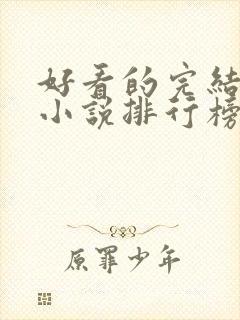 好看的完结
小说排行榜
原罪少年